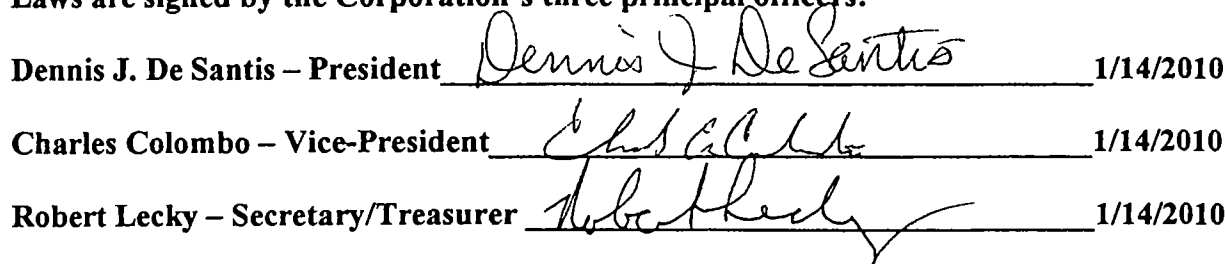 Laws are signed by the Corporation's three principal officers:
Dennis J. De Santis – President Dennis J De Santis 1/14/2010
Charles Colombo – Vice-President 1/14/2010
Robert Lecky – Secretary/Treasurer Robert Lecky 1/14/2010